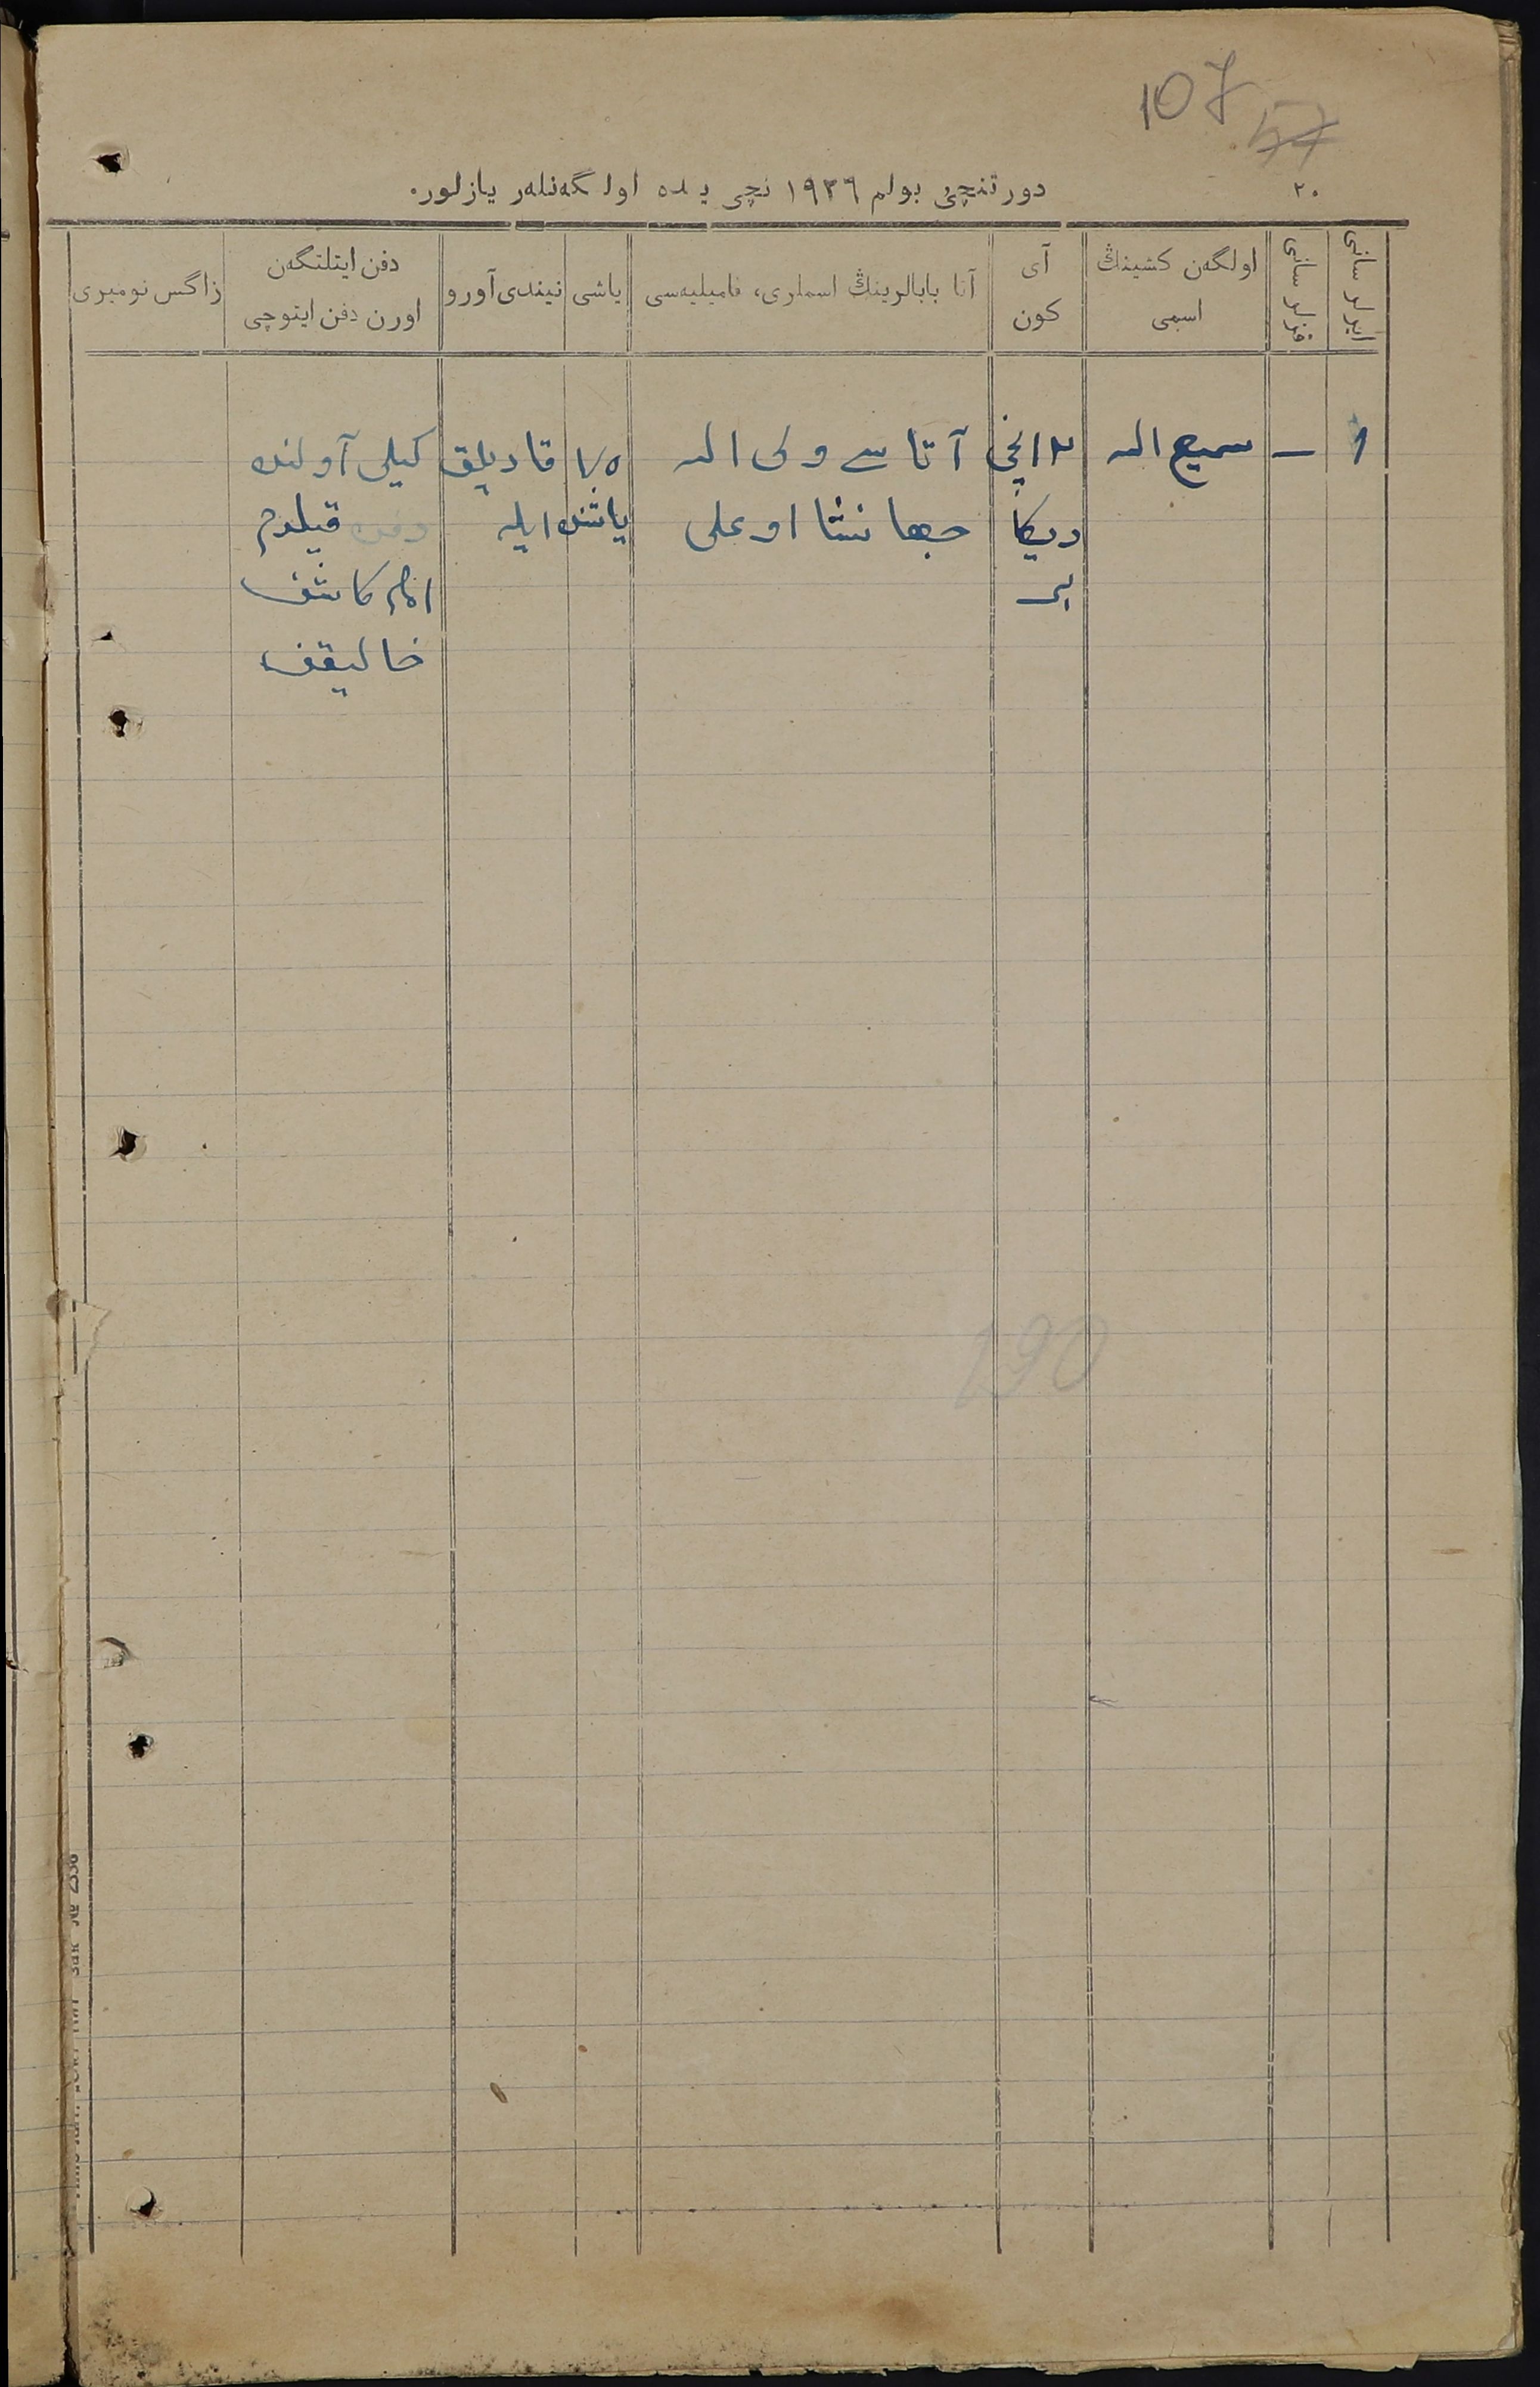 107
57
٢٠
دورتنچی بولم ١٩٢٦ نچی یلده اولگه‌نله‌ر یازلور.
ایرلر سانی
قزلر سانی
اولگه‌ن کشینڭ
اسمی
آی
کون
آتا بابالرینڭ اسملری، فامیلیه‌سی
یاشی
نیندی آورو
دفن ایتلتگه‌ن
اورن دفن ایتوچی
زاگس نومیری
١ — سمیع الله
دیکا
بر
آتا سے ولی الله
جهانشا اوغلی
٧٥
یاشنده
قارتلق
ایله
کیلی آولنده
دفن قیلدم
امام کاشف
خالیقف
190
Зак № 2336